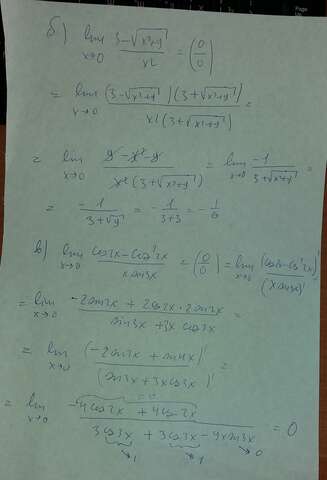 б) lim x→0 (3-√(x²+9))/x² = (0/0)
= lim x→0 ((3-√(x²+9))(3+√(x²+9)))/(x²(3+√(x²+9))) =
= lim x→0 (9-x²-9)/(x²(3+√(x²+9))) = lim x→0 -1/(3+√(x²+9)) =
= -1/(3+√9) = -1/(3+3) = -1/6
в) lim x→0 (cos2x-cos²2x)/(x sin3x) = (0/0) = lim x→0 (cos2x-cos²2x)'/(x sin3x)'
= lim x→0 (-2sin2x + 2cos2x·2sin2x)/(sin3x+3x cos3x) =
= lim x→0 (-2sin2x + sin4x)'/(sin3x+3xcos3x)' =
= lim x→0 (-4cos2x + 4cos2x)/(3cos3x + 3cos3x - 9xsin3x) = 0
↘1 ↘1 ↘0